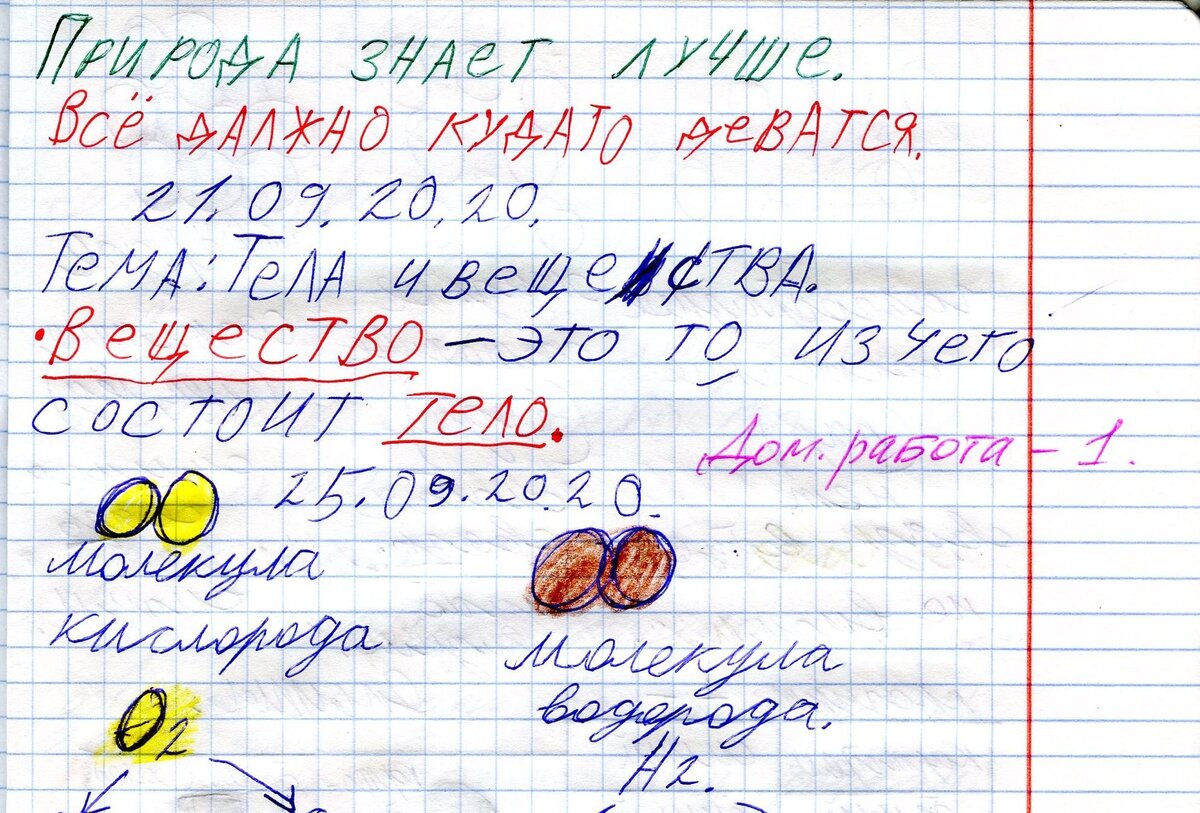 Природа знает лучше.
Всё должно кудато деватся.
21.09.20,20.
Тема: Тела и вещества.
• Вещество – это то из чего
состоит тело.
Дом. работа – 1.
25.09.2020.
Молекула
кислорода
Молекула
водорода.
O2
H2.